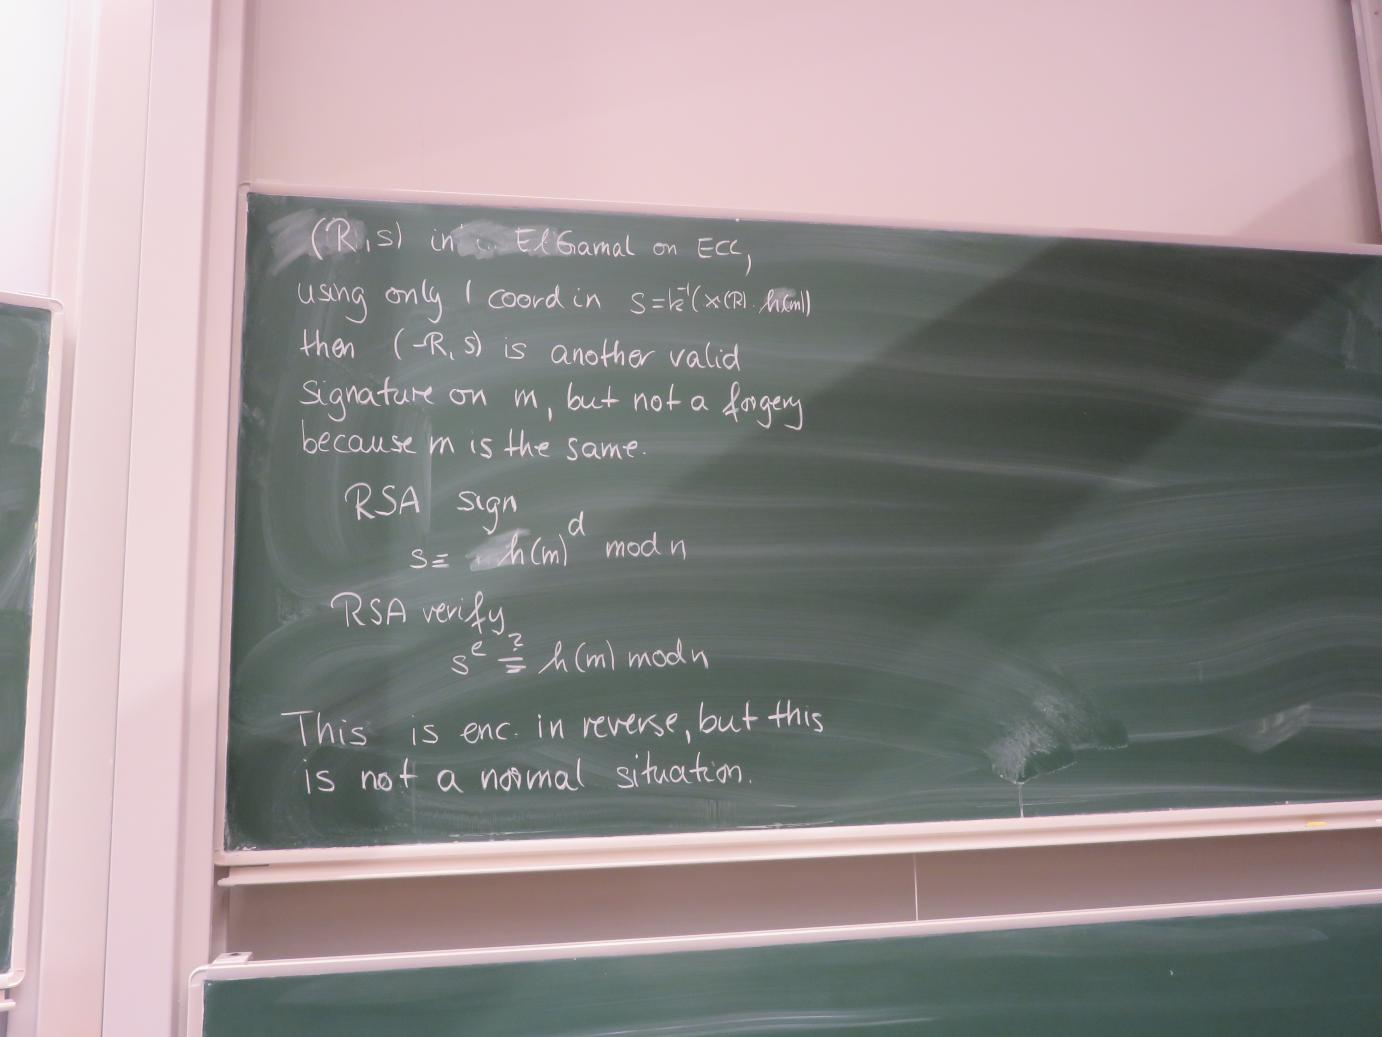 (R,s) in ElGamal on ECC,
using only 1 coord in s=k⁻¹(x(R). h(m))
then (-R,s) is another valid
signature on m, but not a forgery
because m is the same.
RSA sign
s≡ h(m)^d mod n
RSA verify
s^e ≟ h(m) mod n
This is enc. in reverse, but this
is not a normal situation.